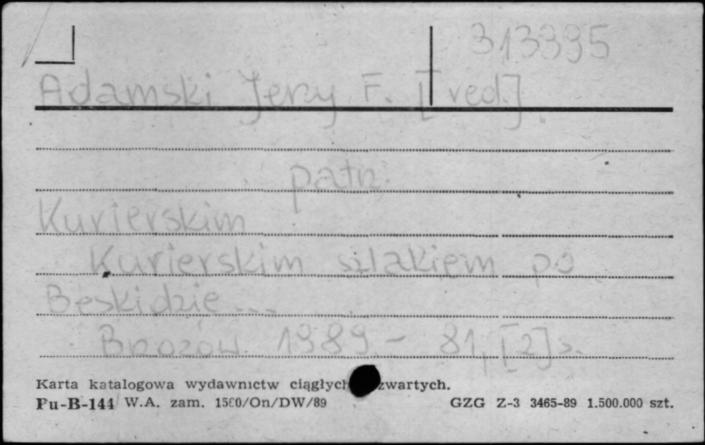 313395
Adamski Jerzy F. [red.].
patrz:
Kurierskim
Kurierskim szlakiem po
Beskidzie...
Brzozów 1989 - 81, [2] s.
Karta katalogowa wydawnictw ciągłych zwartych.
Pu-B-144 W.A. zam. 1500/On/DW/89 GZG Z-3 3465-89 1.500.000 szt.